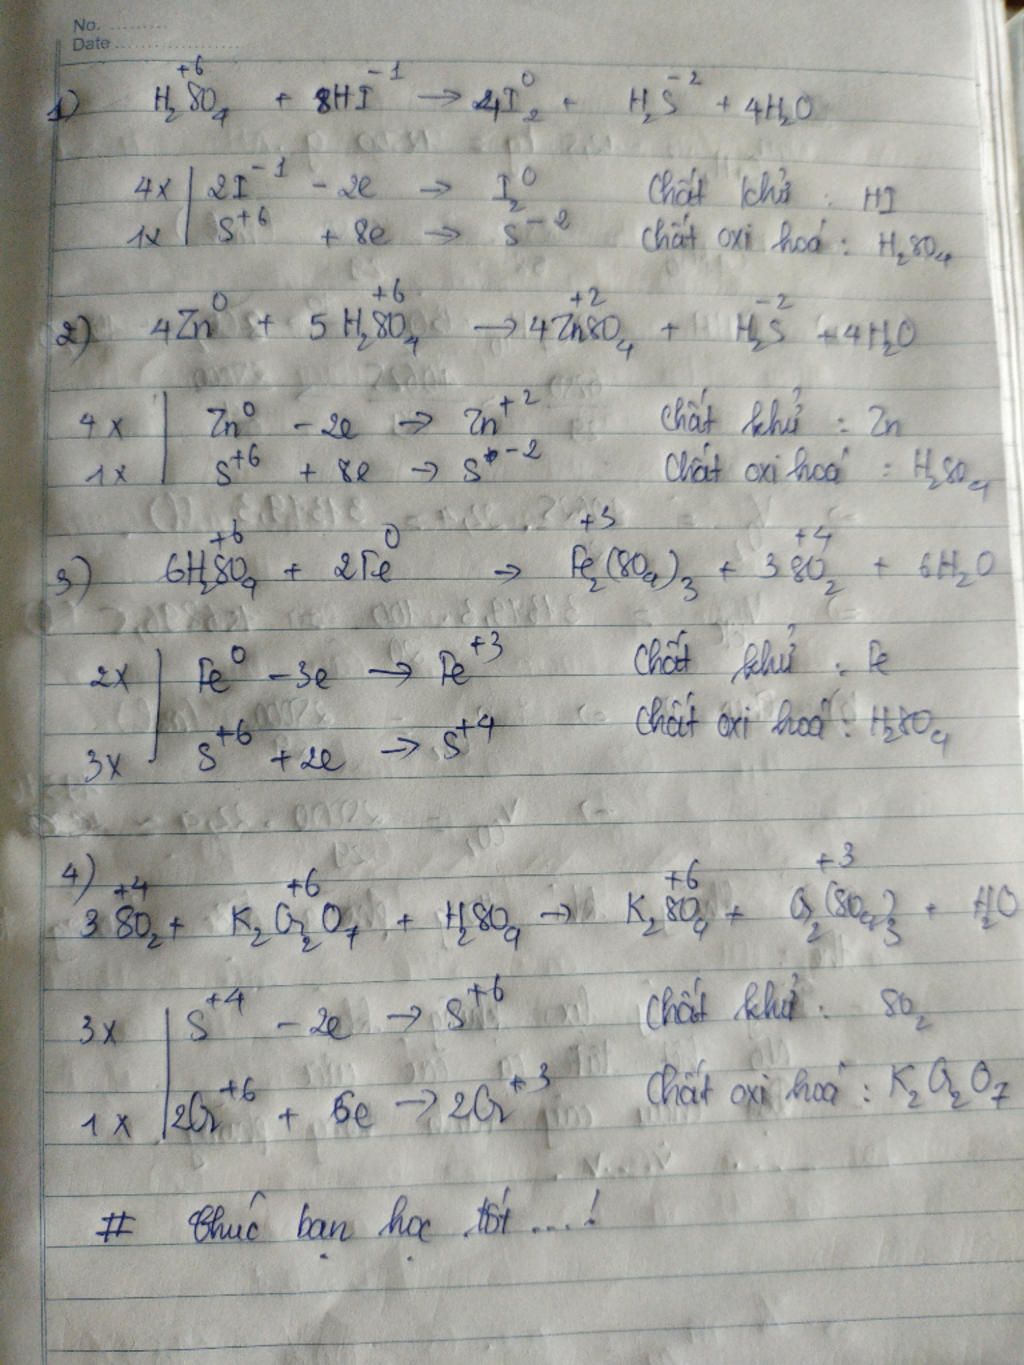 No. ..........
Date ......................
1) H₂S⁺⁶O₄ + 8HI⁻¹ → 4I₂⁰ + H₂S⁻² + 4H₂O
4x | 2I⁻¹ - 2e → I₂⁰ Chất khử : HI
1x | S⁺⁶ + 8e → S⁻² Chất oxi hoá : H₂SO₄
2) 4Zn⁰ + 5H₂S⁺⁶O₄ → 4Zn⁺²SO₄ + H₂S⁻² + 4H₂O
4x | Zn⁰ - 2e → Zn⁺² Chất khử : Zn
1x | S⁺⁶ + 8e → S⁻² Chất oxi hoá : H₂SO₄
3) 6H₂S⁺⁶O₄ + 2Fe⁰ → Fe₂⁺³(SO₄)₃ + 3S⁺⁴O₂ + 6H₂O
2x | Fe⁰ - 3e → Fe⁺³ Chất khử : Fe
3x | S⁺⁶ + 2e → S⁺⁴ Chất oxi hoá : H₂SO₄
4)
3S⁺⁴O₂ + K₂Cr₂⁺⁶O₇ + H₂SO₄ → K₂S⁺⁶O₄ + Cr₂⁺³(SO₄)₃ + H₂O
3x | S⁺⁴ - 2e → S⁺⁶ Chất khử : SO₂
1x | 2Cr⁺⁶ + 6e → 2Cr⁺³ Chất oxi hoá : K₂Cr₂O₇
# Chúc bạn học tốt ....!